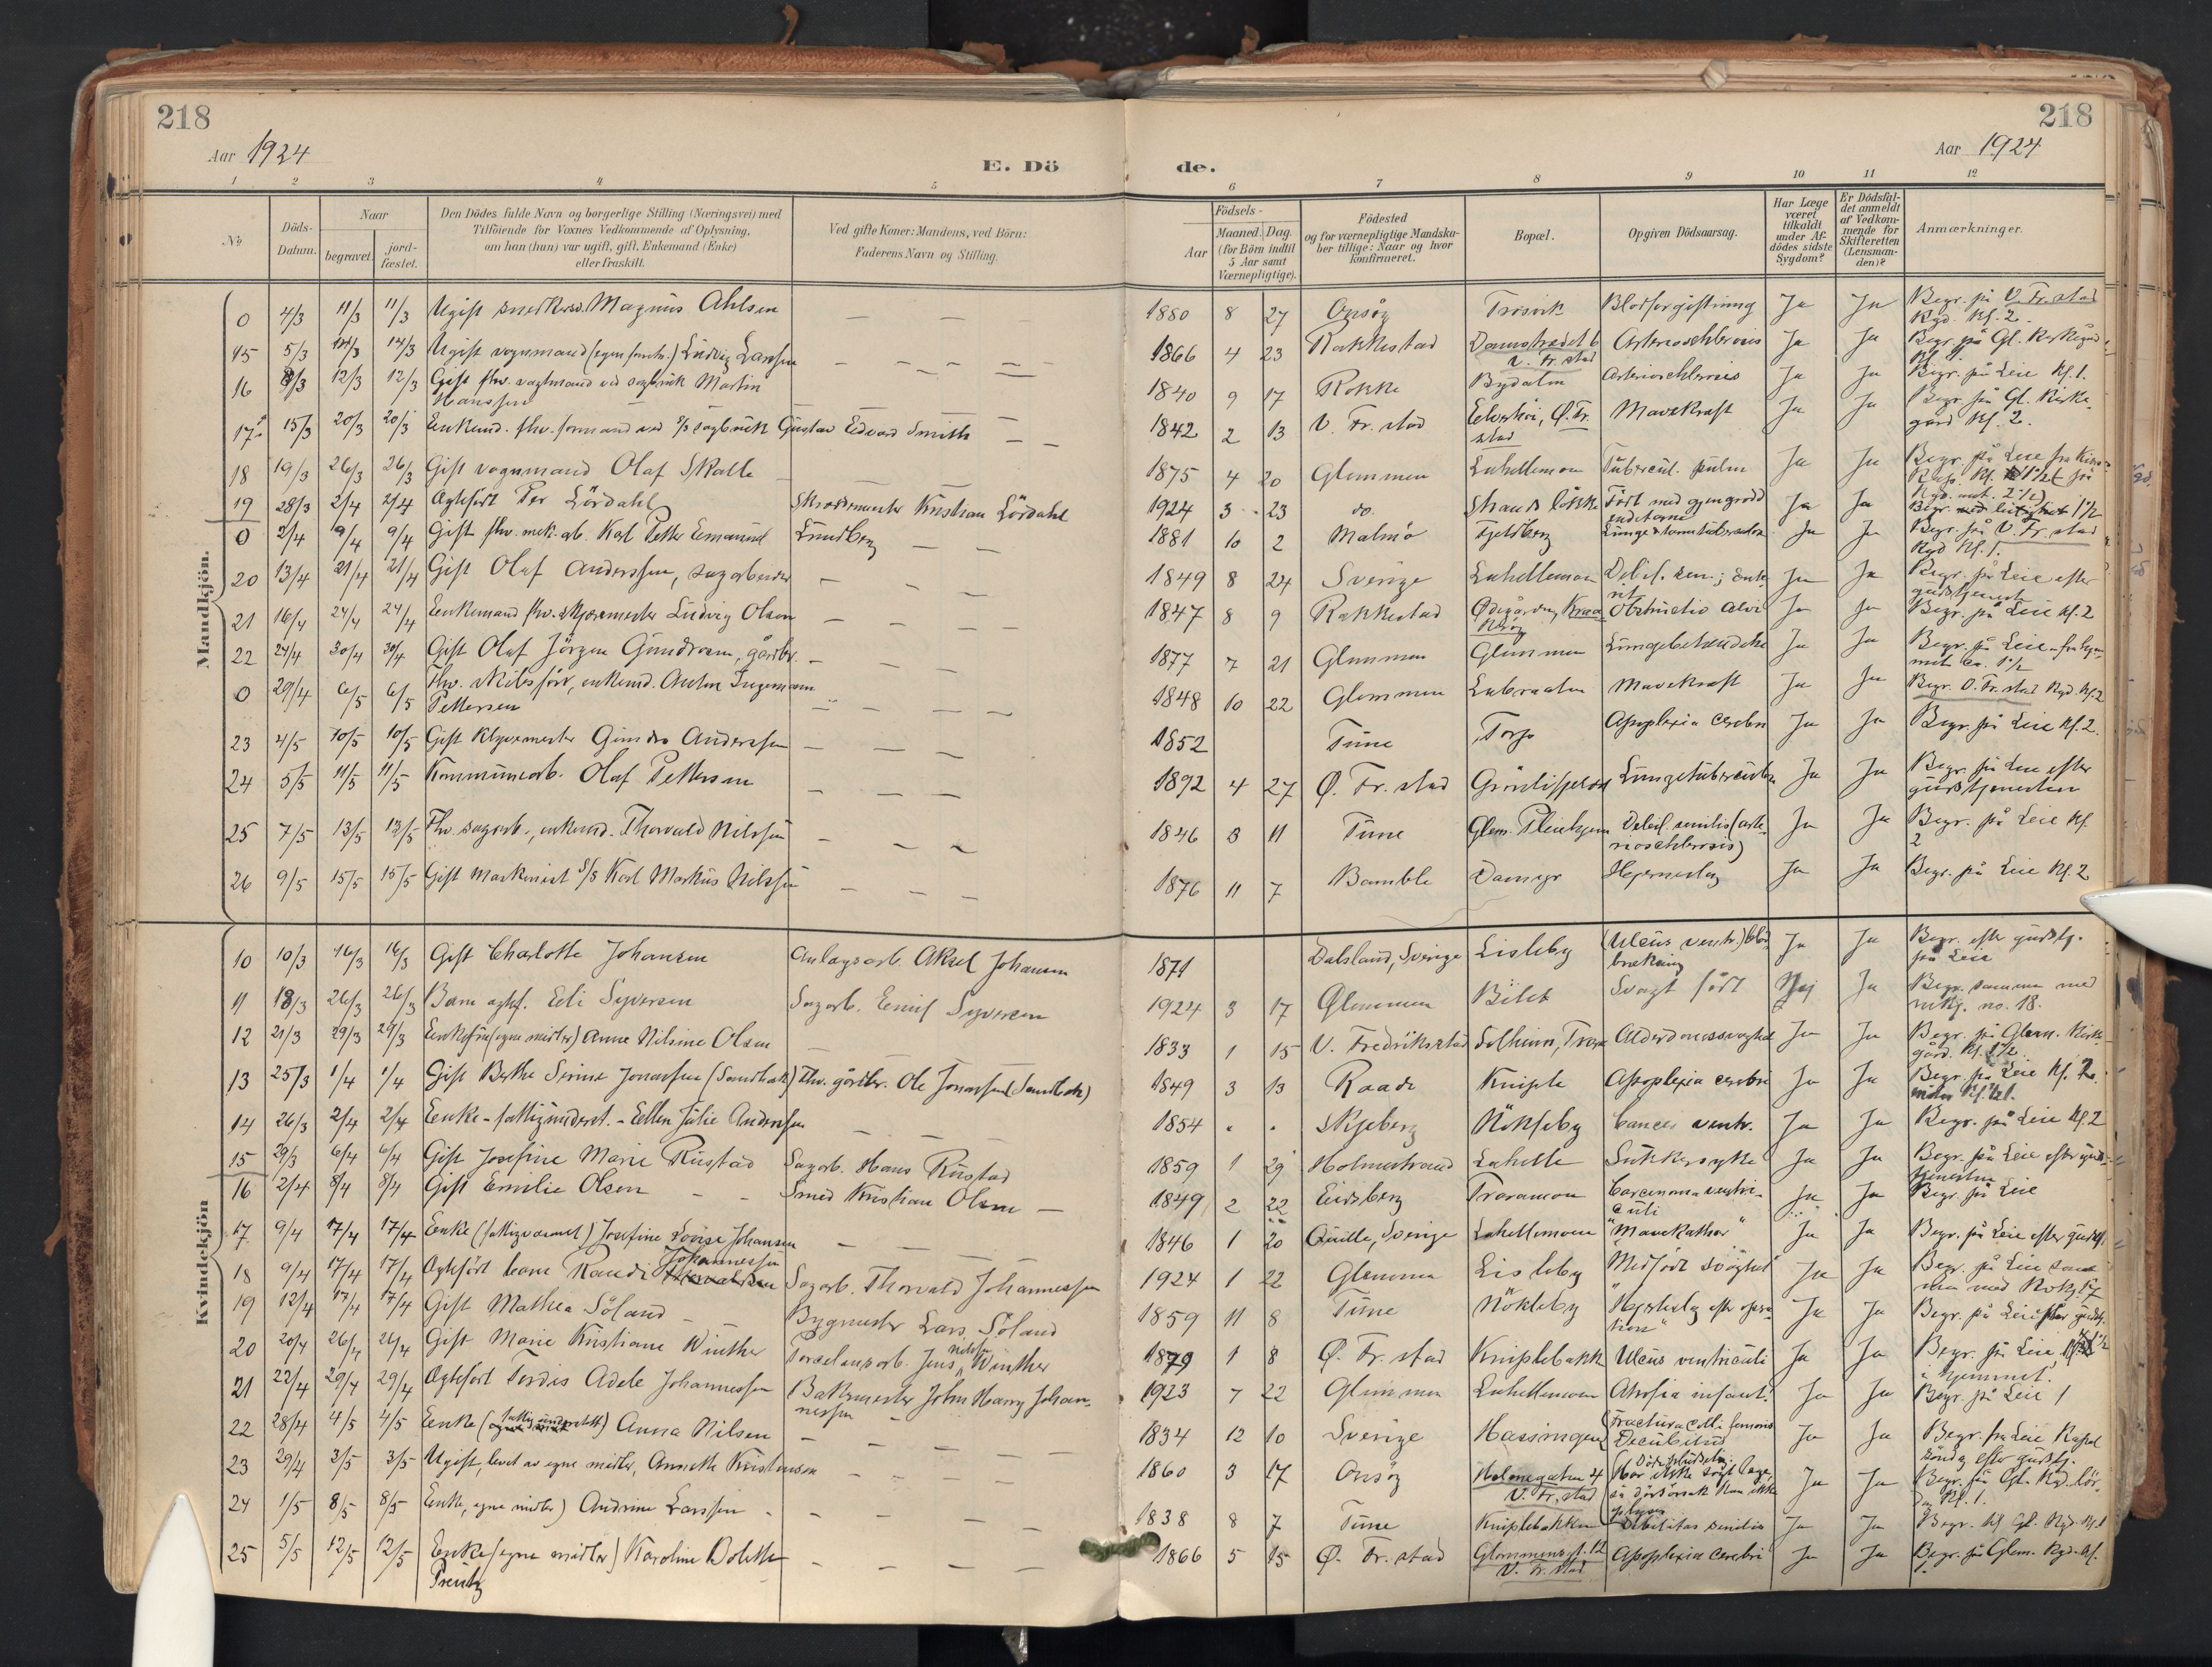 218
Aar 1924
E. Dö
de.
218
Aar 1924
1 2 3 4 5 6 7 8 9 10 11 12
No
Döds-
Datum.
Naar
begravet.
jord-
fæstet.
Den Dödes fulde Navn og borgerlige Stilling (Næringsvei) med
Tilföiende for Voxnes Vedkommende af Oplysning,
om han (hun) var ugift, gift, Enkemand (Enke)
eller fraskilt.
Ved gifte Koner: Mandens, ved Börn:
Faderens Navn og Stilling.
Födsels-
Aar
Maaned. Dag.
(for Börn indtil
5 Aar samt
Værnepligtige).
Födested
og for værnepligtige Mandska-
ber tillige: Naar og hvor
konfirmeret.
Bopæl.
Opgiven Dödsaarsag.
Har Læge
været
tilkaldt
under Af-
dödes sidste
Sygdom?
Er Dödsfal-
det anmeldt
af Vedkom-
mende for
Skifteretten
(Lensman-
den)?
Anmærkninger.
Mandkjön.
0 4/3 11/3 11/3 Ugift snedkersv. Magnus Ahlsen — — — 1880 8 27 Onsöy Trosvik Blodforgiftning Ja Ja Begr. på V. Fr.stad
Kgd. Kl. 2.
15 5/3 14/3 14/3 Ugift vognmand (egen forretn.) Ludvig Larssen — — — 1866 4 23 Rakkestad Damstrædet 6 Arterioschlerosis Ja Ja Begr. på Gl. Kirkegård
V. Fr. stad
16 8/3 12/3 12/3 Gift fhv. vagtmand ved sagbruk Martin 1840 9 17 Rokke Bydalen Arterioschlerosis Ja Ja Begr. på Leie Kl. 1.
Hanssen — — —
17 15/3 20/3 20/3 Enkemd. fhv. formand ved sagbruk Gustav Edvard Smith — — 1842 2 13 V. Fr. stad Ø. Fr. Mavekræft Ja Ja Begr. på Gl. Kirke-
stad gård Kl. 2.
18 19/3 26/3 26/3 Gift vognmand Olaf Skolle — — — 1875 4 20 Glemmen Lahellemoen Tubercul. pulm Ja Ja Begr. på Leie fra
19 28/3 2/4 2/4 Ægtefödt Per Lördahl Skræddermester Kristian Lördahl 1924 3 23 do. Strands lökke Födt med gjengrodd Ja Ja
endetarm
0 2/4 9/4 9/4 Gift fhv. mek. arb. Karl Petter Emanuel Lundberg — — 1881 10 2 Malmö Fjeldberg Lunge & tarmtuberculose Ja Ja Begr. på V. Fr. stad
Kgd Kl. 1.
20 13/4 21/4 21/4 Gift Olaf Anderssen, sagarbeider — — — 1849 8 24 Sverige Lahellemoen Debil. sen.; Ente- Ja Ja Begr. på Leie efter
rit gudstjeneste
21 16/4 24/4 24/4 Enkemand fhv. skjæremester Ludvig Olsen — — — 1847 8 9 Rakkestad Ødegården, Kraa- Obstructio alvi Ja Ja Begr. på Leie Kl. 2
keröy
22 24/4 30/4 30/4 Gift Olaf Jörgen Gundersen, gårdbr. — — — 1877 7 21 Glemmen Glemmen Lungebetændelse Ja Ja Begr. på Leie – fra hjem-
met ca. 1 1/2
0 29/4 6/5 6/5 Fhv. skibsförer, enkemd. Anton Ingemann 1848 10 22 Glemmen Labraaten Mavekræft Ja Ja Begr. Ø. Fr. stad Kgd. Kl. 2
Pettersen — — —
23 4/5 10/5 10/5 Gift klypemester Gunder Anderssen — — — 1852 Tune Torp Apoplexia cerebri Ja Ja Begr. på Leie Kl. 2.
24 5/5 11/5 11/5 Kommunearb. Olaf Pettersen — — — 1892 4 27 Ø. Fr. stad Grönli Lungetuberculose Ja Ja Begr. på Leie efter
gudstjenesten
25 7/5 13/5 13/5 Fhv. sagarb., enkemd. Thorvald Nilssen — — — 1846 3 11 Tune Glem. Pleiehjem Debil. senilis (arte- Ja Ja Begr. på Leie Kl.
rioschlerosis) 2
26 9/5 15/5 15/5 Gift maskinist S/S Karl Markus Nilssen — — — 1876 11 7 Bamble Damyr Hjerneslag Ja Ja Begr. på Leie Kl. 2
Kvindekjön
10 10/3 16/3 16/3 Gift Charlotte Johansen Anlægsarb. Aksel Johansen 1871 Dalsland, Sverige Lisleby (Ulcus ventr.) Blod- Ja Ja Begr. efter gudstj.
brækning på Leie
11 18/3 26/3 26/3 Barn ægtef. Edi Syversen Sagarb. Emil Syversen 1924 3 17 Glemmen Bilet Svagt födt Nej Ja Begr. sammen med
mkj. no. 18.
12 21/3 29/3 29/3 Enkefru (egne midler) Anne Nilsine Olsen — 1833 1 15 V. Fredrikstad Solheim, Trara Alderdomssvaghed Ja Ja Begr. på Glem. Kirke-
gård.
13 25/3 1/4 1/4 Gift Berthe Serine Jonassen (Sandbak) Fhv. gårdbr. Ole Jonassen (Sandbak) 1849 3 13 Raade Kniple Apoplexia cerebri Ja Ja Begr. på Leie Kl. 2.
14 26/3 2/4 2/4 Enke – fattigunderst. – Ellen Julie Anderssen — — — 1854 Skjeberg Nökleby Cancer ventr. Ja Ja Begr. på Leie Kl. 2
15 29/3 6/4 6/4 Gift Josefine Marie Rustad Sagarb. Hans Rustad 1859 1 29 Holmestrand Lahelle Sukkersyke Ja Ja Begr. på Leie efter guds-
tjenesten
16 2/4 8/4 8/4 Gift Emilie Olsen — — Smed Kristian Olsen — 1849 2 22 Eidsberg Traramoen Carcinoma ventri- Ja Ja Begr. på Leie
culi
17 9/4 17/4 17/4 Enke (fattigvæsenet) Josefine Lovise Johansen — — — 1846 1 20 Quille, Sverige Lahellemoen "Mavekathar" Ja Ja Begr. på Leie efter gudstj.
18 9/4 17/4 17/4 Ægtefödt barn Randi Johannessen Sagarb. Thorvald Johannessen 1924 1 22 Glemmen Lisleby Medfödt svaghet Ja Ja Begr. på Leie sam-
men med Kvkj. 17
19 12/4 17/4 17/4 Gift Mathea Söland — Bygmester Lars Söland 1859 11 8 Tune Nökleby "Hjerteslag efter opera- Ja Ja Begr. på Leie efter gudstj.
tion"
20 20/4 26/4 26/4 Gift Marie Kristiane Winther Porcelænsarb. Jens Winther 1879 1 8 Ø. Fr. stad Kniplebakk Ulcus ventriculi Ja Ja Begr. på Leie
i hjemmet.
21 22/4 29/4 29/4 Ægtefödt Tordis Adele Johannessen Bakermester John Harry Johan- 1923 7 22 Glemmen Lahellemoen Atrofia infant. Ja Ja Begr. på Leie 1
nessen
22 28/4 4/5 4/5 Enke (fattigunderstött) Anna Nilsen — — — — 1834 12 10 Sverige Hassingen (Fractura colli femoris Ja Ja Begr. fra Leie Kapel
Decubitus söndag efter gudstj.
23 29/4 3/5 3/5 Ugift, levet av egne midler, Annette Kristensen — — — 1860 3 17 Onsöy Holmegaten 4 Har ikke sögt læge, Ja Ja Begr. på Gl. Kgd. lör-
V. Fr. stad så dödsårsak kan ikke dag Kl. 1.
24 1/5 8/5 8/5 Enke, egne midler) Andrine Larssen — — — 1838 8 7 Tune Kniplebakken Debilitas senilis Ja Ja Begr. på Gl. Kgd. Kl.
25 5/5 12/5 12/5 Enke (egne midler) Karoline Dolette — — — 1866 5 15 Ø. Fr. stad Glommensgt. 12 Apoplexia cerebri Ja Ja Begr. på Glem. Kgd. Kl.
Preutz V. Fr. stad 1.